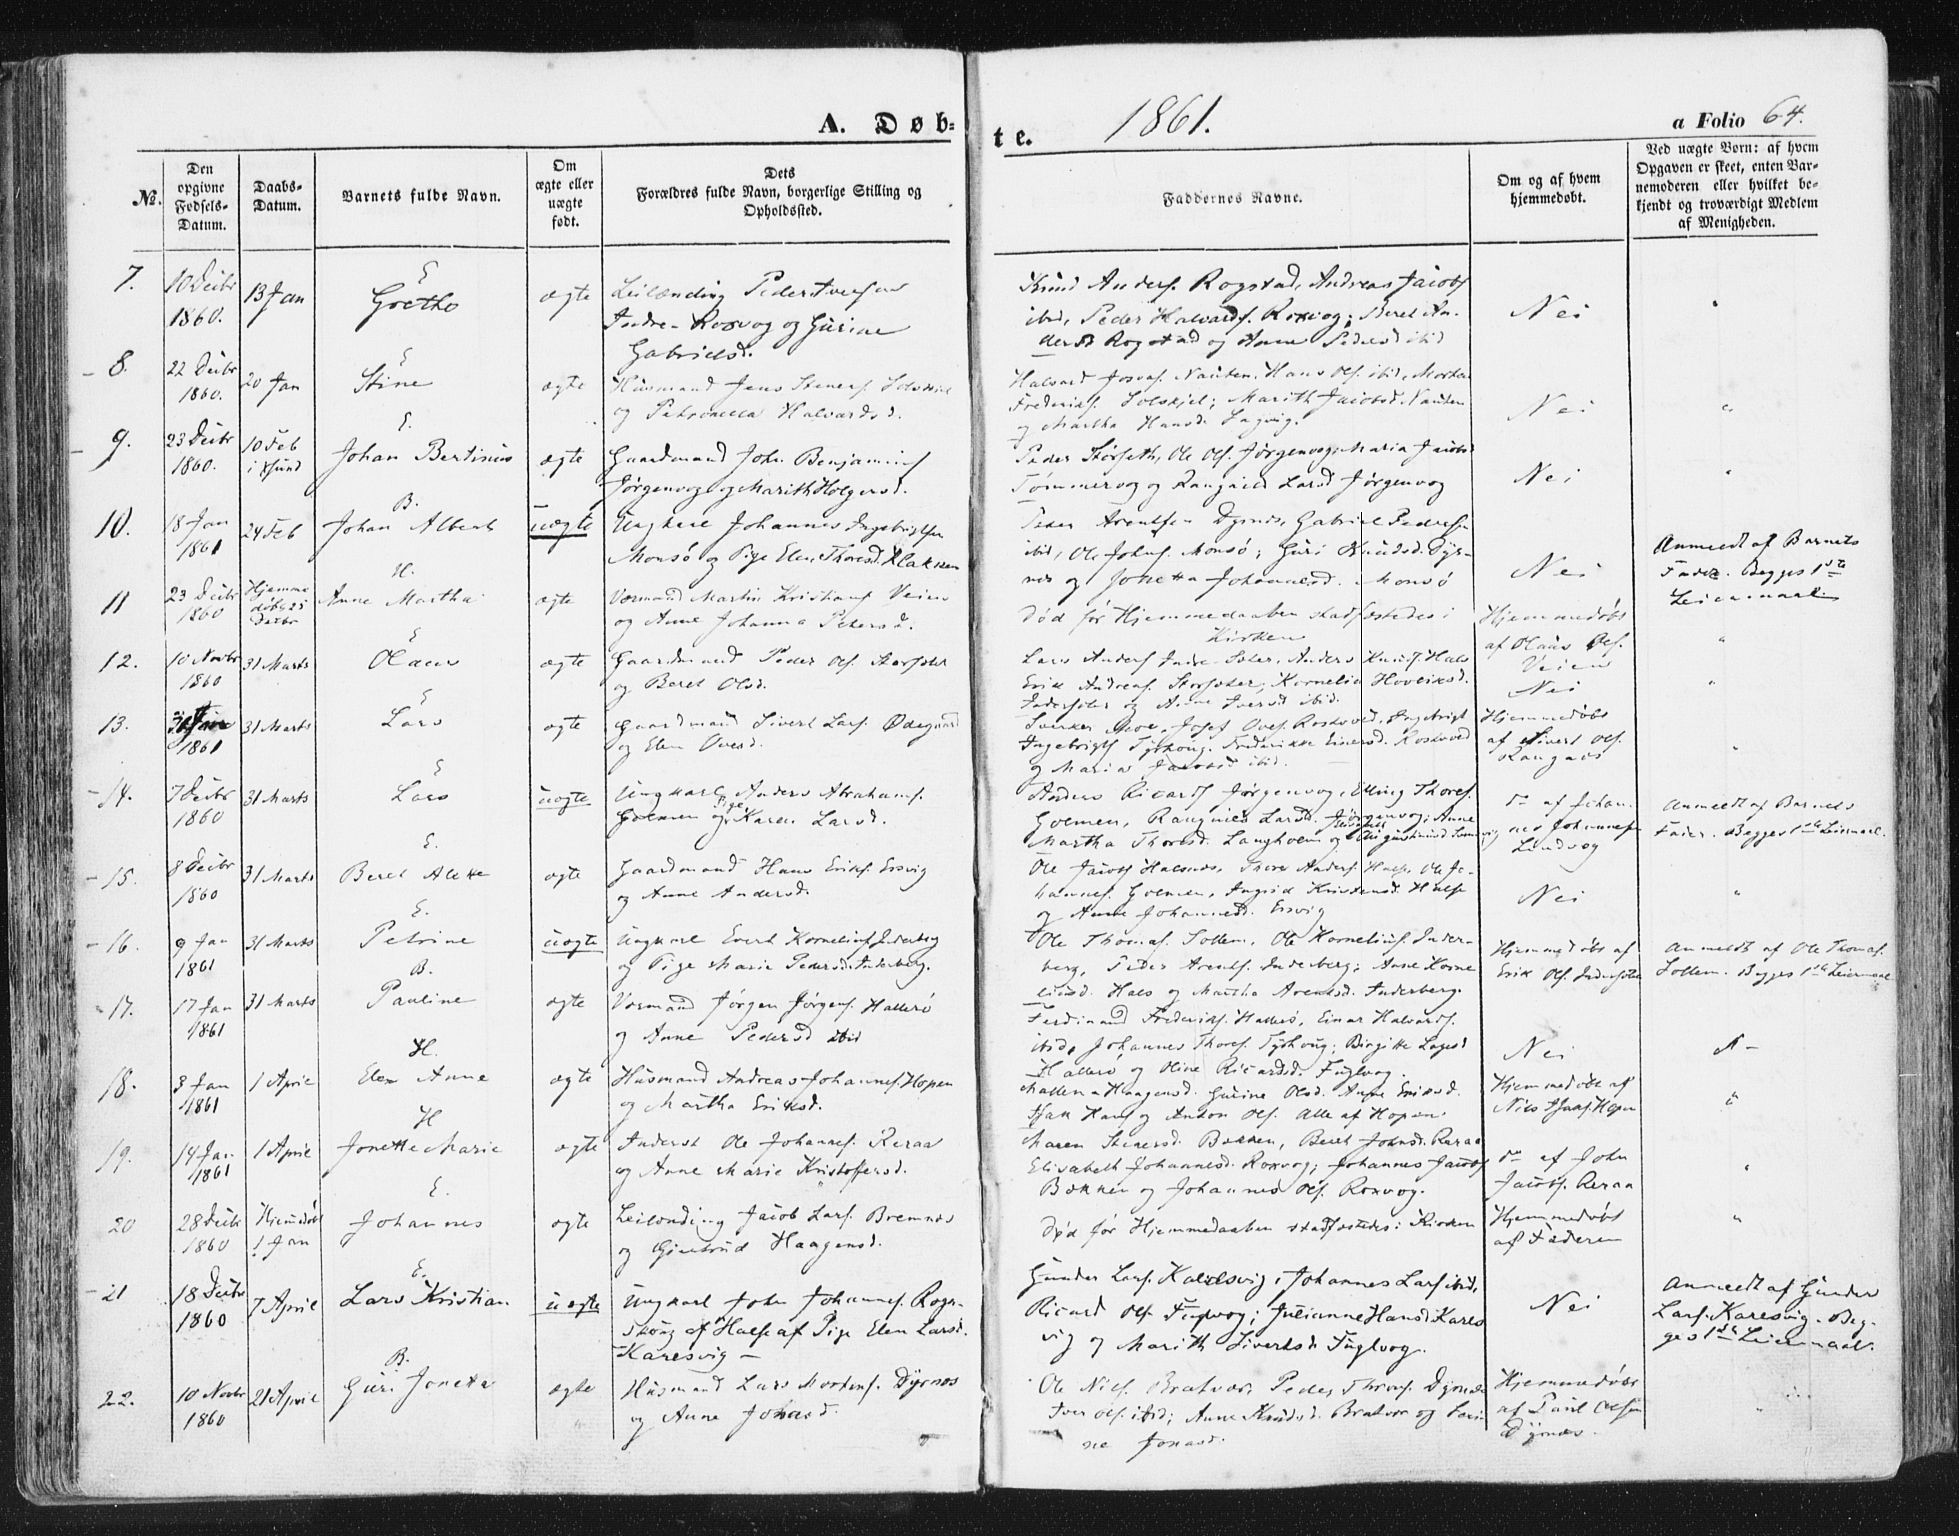 A. Døb-
te.
1861.
a Folio 64.
№.
Den opgivne Fødsels-Datum.
Daabs-Datum.
Barnets fulde Navn.
Om ægte eller uægte født.
Dets Forældres fulde Navn, borgerlige Stilling og Opholdssted.
Faddernes Navne.
Om og af hvem hjemmedøbt.
Ved uægte Børn: af hvem Opgaven er skeet, enten Barnemoderen eller hvilket bekjendt og troværdigt Medlem af Menigheden.
7. 10 Decbr 1860. 13 Jan
E
Grethe
ægte
Leilænding Peder Iversen
Indre-Roxvog og Gurine
Gabrielsd.
Knud Anders. Rogstad, Andreas Jacobs.
ibid, Peder Halvards. Roxvog; Beret An-
dersd Rogstad og Anne Pedersd ibid
Nei
"
8. 22 Decbr 1860. 20 Jan
E
Stine
ægte
Husmand Jens Steners. Solskjel
og Petronella Halvardsd.
Halvard Nauten. Hans Ols. ibid, Morten
Frederiks. Solskjel; Marith Jacobsd. Nauten
og Martha Hansd.
Nei
"
9. 23 Decbr 1860. 10 Feb i Xsund
E.
Johan Bertinus
ægte
Gaardmand John Benjamins
Jørgenvog og Marith Holgersd.
Peder Storseth, Ole Ols. Jørgenvog, Maria Jacobsd
Tømmervog og Larsd Jørgenvog
Nei
"
10. 18 Jan 1861 24 Feb
B.
Johan Albert
uægte
Ungkarl Johannes Ingebrigtsen
Monsø og Pige Elen Thoresd. Klakken
Peder Arentsen Dyrnes, Gabriel Peders.
ibid, Ole Johns. Monsø; Guri Knudsd. Dyr-
nes og Jonetta Johannesd. Monsø
Nei
Anmeldt af Barnets
Fader. Begges 1ste
Leiermaal
11 23 Decbr 1860 Hjemme døbt 25 Decbr
H.
Anne Martha
ægte
Vormand Martin Kristians. Veien
og Anne Johanna Petersd.
Død før Hjemmedaaben stadfæstedes i
Kirken
Hjemmedøbt
af Olaus Ols.
Veien
"
12. 10 Novbr 1860 31 Marts
E
Olaus
ægte
Gaardmand Peder Ols. Storsoter
og Beret Olsd.
Lars Anders. Indre-Soter, Anders Knuds. Hals
Erik Andreas. Storsoter, Kornelia
og Anne Iversd ibid.
Nei
"
13. 1861 31 Marts
E
Lars
ægte
Gaardmand Sivert Lars. Ødegaard
og Elen Ovesd.
Moe, Josef Oves. Roskved, Ingebrigt
Ingebrigts. Tyskoug. Frederikke Einersd. Roskved
og Maria Jacobsd ibid.
Hjemmedøbt
af Sivert Ols.
"
14. 7 Decbr 1860 31 Marts
E
Lars
uægte
Ungkarl Anders Abrahams.
Golmen og Pige Karen Larsd.
Anders Ricards Jørgenvog, Elling Thores.
Golmen, Larsd. Jørgenvog; Anne
Martha Thoresd. Langholm og
do af Johan-
nes Johannesen
Lindvog
Anmeldt af Barnets
Fader. Begges 1ste Leiermaal.
15. 8 Decbr 1860 31 Marts
E.
Beret Aleke
ægte
Gaardmand Hans Eriks. Ersvig
og Anne Andersd.
Ole Jacobs Halsnes, Thore Anders. Halse, Ole Jo-
hannes. Golmen, Ingrid Kristensd. Halse
og Anne Johannesd. Ersvig
Nei
"
16. 9 Jan 1861 31 Marts
E.
Petrine
uægte
Ungkarl Evert Kornelius. Inderberg
og Pige Marie Pedersd. Inderberg.
Ole Thomas. Sollem, Ole Kornelius. Inder-
berg, Peder Arents. Inderberg; Anne Korne-
liusd. Hals og Martha Arentsd. Inderberg.
Hjemmedøbt af
Erik Ols.
Anmeldt af Ole Thomas.
Sollem. Begges 1ste Leiermaal
17. 17 Jan 1861 31 Marts
B.
Pauline
ægte
Vormand Jørgen Jørgens. Hallerø
og Anne Pedersd ibid
Ferdinand Frederiks. Hallerø, Einar Halvards.
ibid, Johannes Thores. Tyskoug; Birgitte Lagesd
Hallerø og Oline Ricardsd. Fuglvog.
Nei
18. 3 Jan 1861 1 April
H.
Elen Anne
ægte
Husmand Andreas Johannes. Hopen
og Martha Eriksd.
Mallena Haagensd. Gurine Olsd. Anne Eriksd.
Isak Hans og Anton Ols. Alle af Hopen.
Hjemmedøbt af
Nils Isaks. Hopen
"
19. 14 Jan 1861 1 April
H
Jonette Marie
ægte
Inderst Ole Johannes. Reraa
og Anne Marie Kristoffersd.
Maren Stenersd. Bækken, Beret Johnsd. Reraa
Elisabeth Johannesd. Roxvog; Johannes Jacobs
Bækken og Johannes Ols. Roxvog.
do af John
Jacobs. Reraa
"
20 28 Decbr 1860 Hjemdøbt 1 Jan
E.
Johannes
ægte
Leilending Jacob Lars. Bremnes
og Gjertrud Haagensd.
Død før Hjemmedaaben stadfæstedes i Kirken
Hjemmedøbt
af Faderen
"
21 18 Decbr 1860 7 April
E.
Lars Kristian
uægte
Ungkarl John Johannes. Rogn-
skoug af Halse af Pige Elen Larsd.
Karesvig –
Gunder Lars. Karesvig, Johannes Lars ibid,
Ricard Ols Fuglvog; Julianne Hansd. Kares
vig og Marith Sivertsd. Fuglvog.
Nei
Anmeldt af Gunder
Lars. Karesvig. Beg-
ges 1ste Leiermaal.
22. 10 Novbr 1860 21 April
B.
Guri Jonetta
ægte
Husmand Lars Mortens. Dyrnes
og Anne Johnsd.
Ole Nils. Bratvær, Peder Dyrnes
Iver Ols. ibid; Anne Knudsd. Bratvær og
ne Jonasd.
Hjemmedøbt
af Paul Olsen
Dyrnes.
"